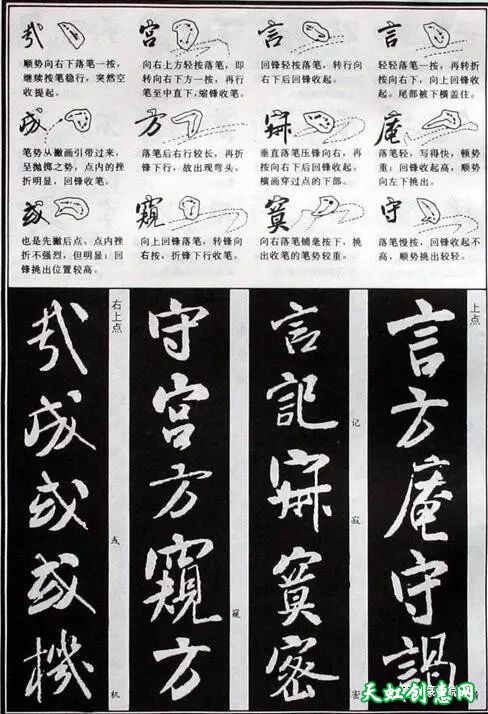 哉
顺势向右下落笔一按，
继续按笔稳行，突然空
收提起。
宫
向右上方轻按落笔，即
转向右上方一按，再行
笔至中直下，缩锋收笔。
言
回锋轻按落笔，转行向
右下后回锋收起。
言
轻轻落笔一按，再转折
按向右下，向上回锋收
起。尾部被下横盖住。
成
笔势从撇画引带过来，
呈抛掷之势，点内的挫
折明显，回锋收笔。
方
落笔后右行较长，再折
锋下行，故出现弯头。
寂
垂直落笔压锋向右，再
按向右下后回锋收起。
横画穿过点的下部。
庵
落笔轻，写得快，顿势
重；回锋收起高，顺势
向左下挑出。
或
也是先撇后点。点内挫
折不强烈，但明显；回
锋挑出位置较高。
窥
向上回锋落笔，转锋向
右按，折锋下行收笔。
寞
向右落笔铺毫按下，挑
出收笔的笔势较重。
守
落笔慢按，回锋收起不
高，顺势挑出较轻。
上点
言方庵守謁
言記寂寞密
记
寂
密
守宫方窺方
窥
右上点
哉成或或機
戓
机
天虹创意网